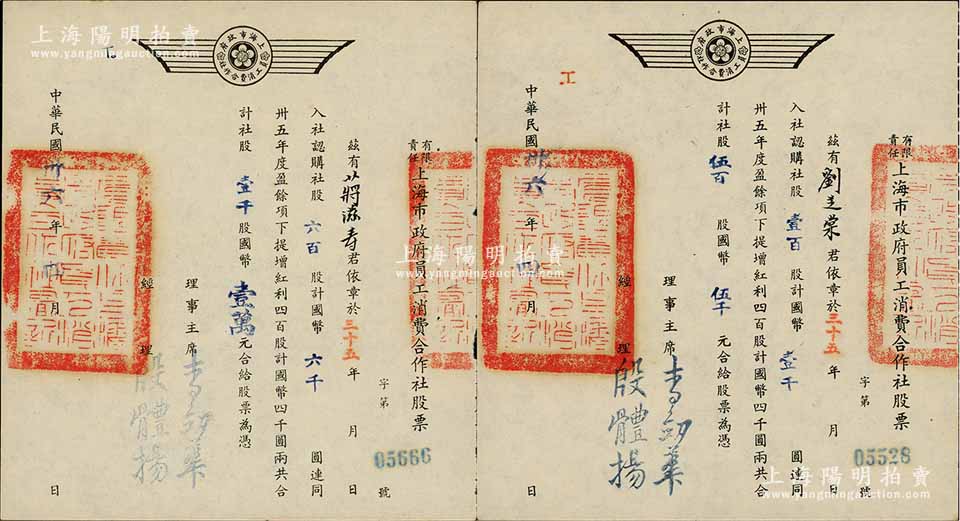 上海陽明拍賣
www.yangmingauction.com
上海市政府
員工消費合作社
有限責任上海市政府員工消費合作社股票
字第 05528 號
茲有劉之棠君依章於三十五年 月 日
入社認購社股壹百股計國幣壹千圓連同
卅五年度盈餘項下提增紅利四百股計國幣四千圓兩共合
計社股伍百股國幣伍千元合給股票為憑
理事主席
經理 殷體揚
中華民國卅六年四月 日
工
上海市政府
員工消費合作社
有限責任上海市政府員工消費合作社股票
字第 05666 號
茲有蔣添寿君依章於三十五年 月 日
入社認購社股六百股計國幣六千圓連同
卅五年度盈餘項下提增紅利四百股計國幣四千圓兩共合
計社股壹千股國幣壹萬元合給股票為憑
理事主席
經理 殷體揚
中華民國卅六年四月 日
上海陽明拍賣
www.yangmingauction.com
上海陽明拍賣
www.yangmingauction.com